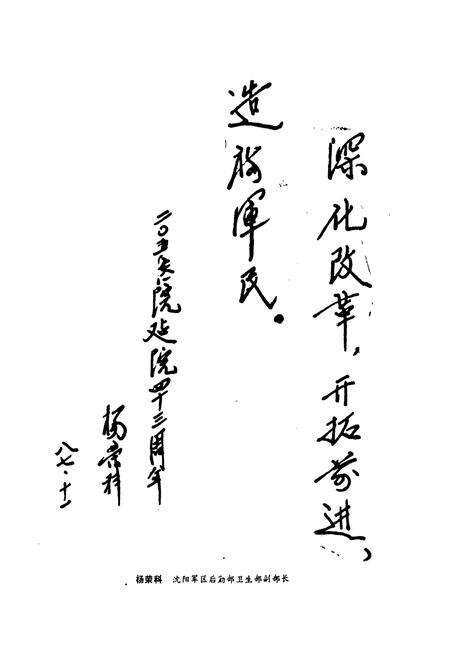 深化改革,开拓前进,
造福军民。
二〇五医院建院四十三周年
杨荣科
八七·十一
杨荣科 沈阳军区后勤部卫生部副部长